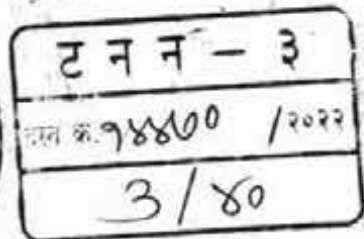 ट न न - ३
दस्त क. १४४७० /२०२२
३/४०